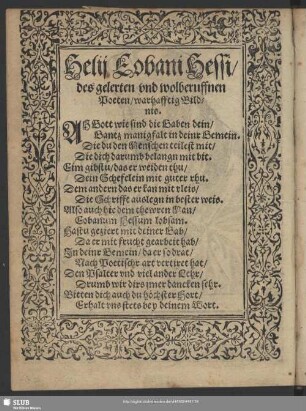 Helij Eobani Hessi/
des gelerten vnd wolberuffnen
Poeten/ warhafftig Bild/
nis.
AH Gott wie sind die Gaben dein/
Gantz manigfalt in deinr Gemein.
Die du den Menschen teilest mit/
Die dich darumb belangn mit bit.
Eim gibstu/ das er weiden thu/
Dein Scheflein mit guter rhu.
Dem andern das er kan mit vleis/
Die Schrifft auslegn in bester weis.
Also auch hie dem thewren Man/
Eobanum Hessum lobsam.
Hastu geziert mit deiner Gab/
Da er mit frucht gearbeit hab/
In deine Gemein/ da er so drat/
Nach Poetischr art vertiret hat/
Den Psalter vnd viel ander Lehr/
Drumb wir dirs jmer dancken sehr.
Bitten dich auch du höchster Hort/
Erhalt vns stets bey deinem Wort.
SLUB